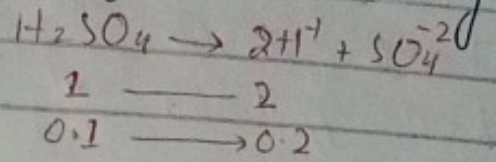 H₂SO₄ → 2H⁺¹ + SO₄⁻²
1 —— 2
0.1 ——→ 0.2